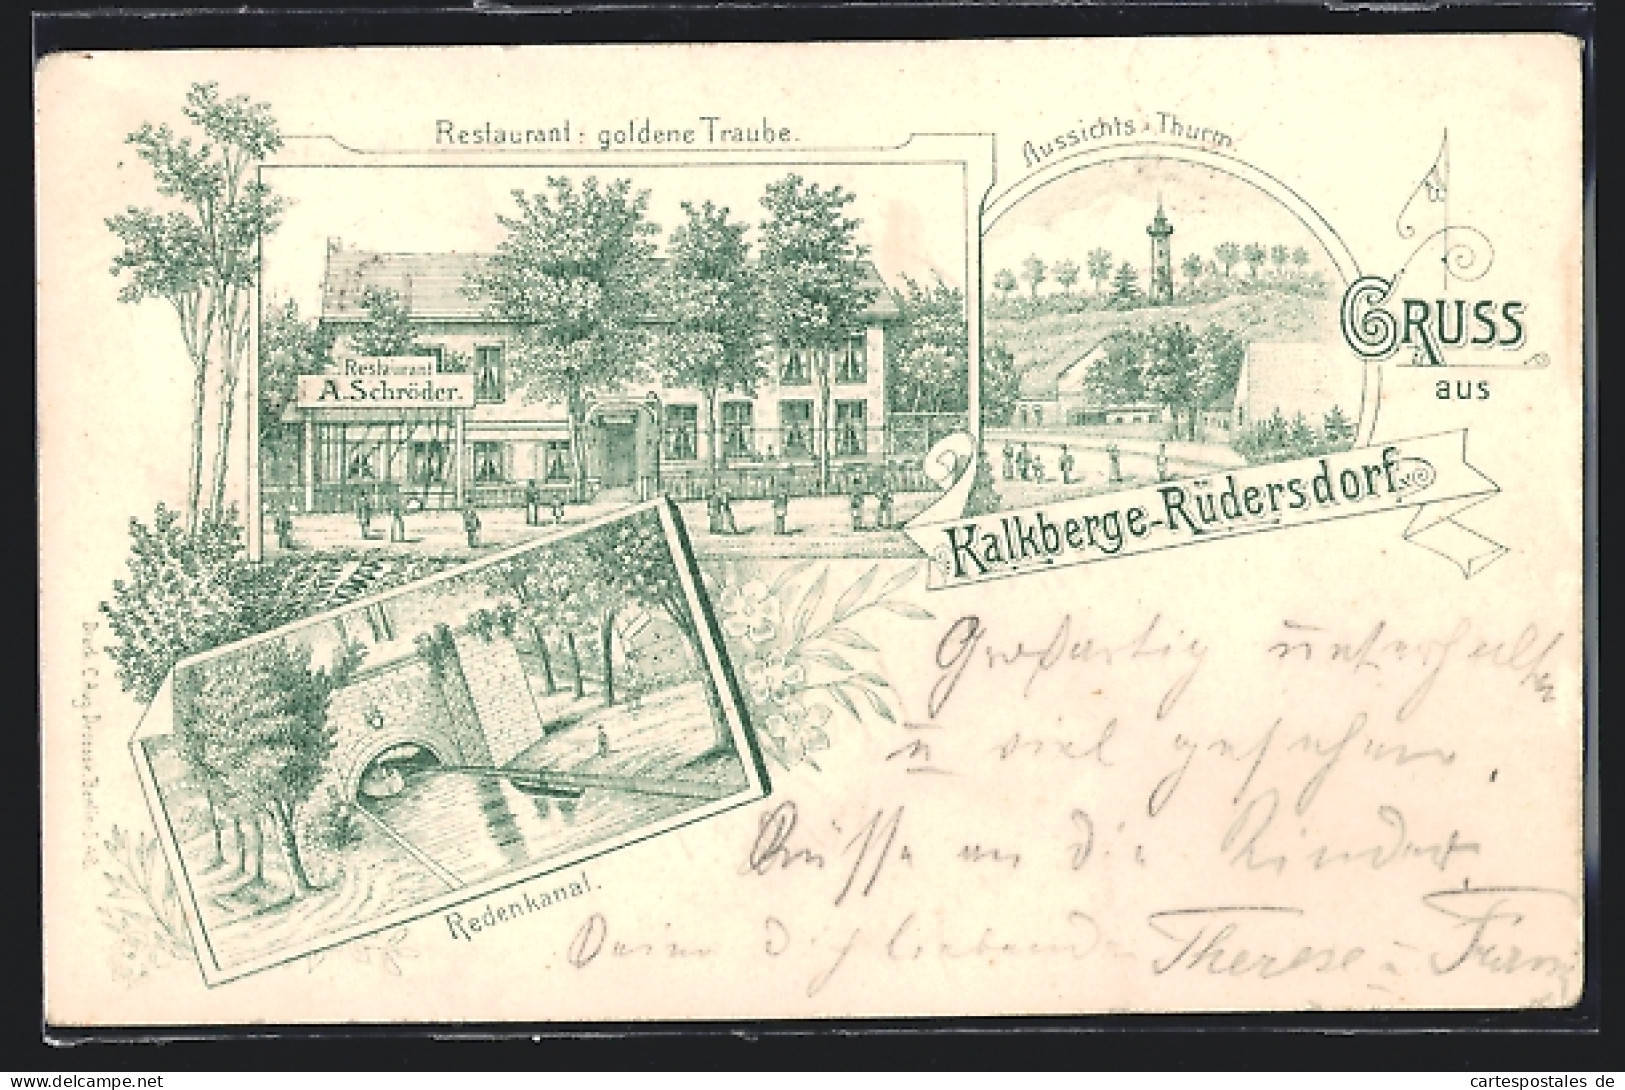 Restaurant : goldene Traube.
Aussichts-Thurm
Restaurant
A. Schröder.
GRUSS
aus
Kalkberge-Rüdersdorf.
Redenkanal.
Großartig unterhalten
u viel gesehen.
Grüsse an die Kinder,
Deine Dich liebende Therese u
Berlin
cartespostales de
cartespostales.de